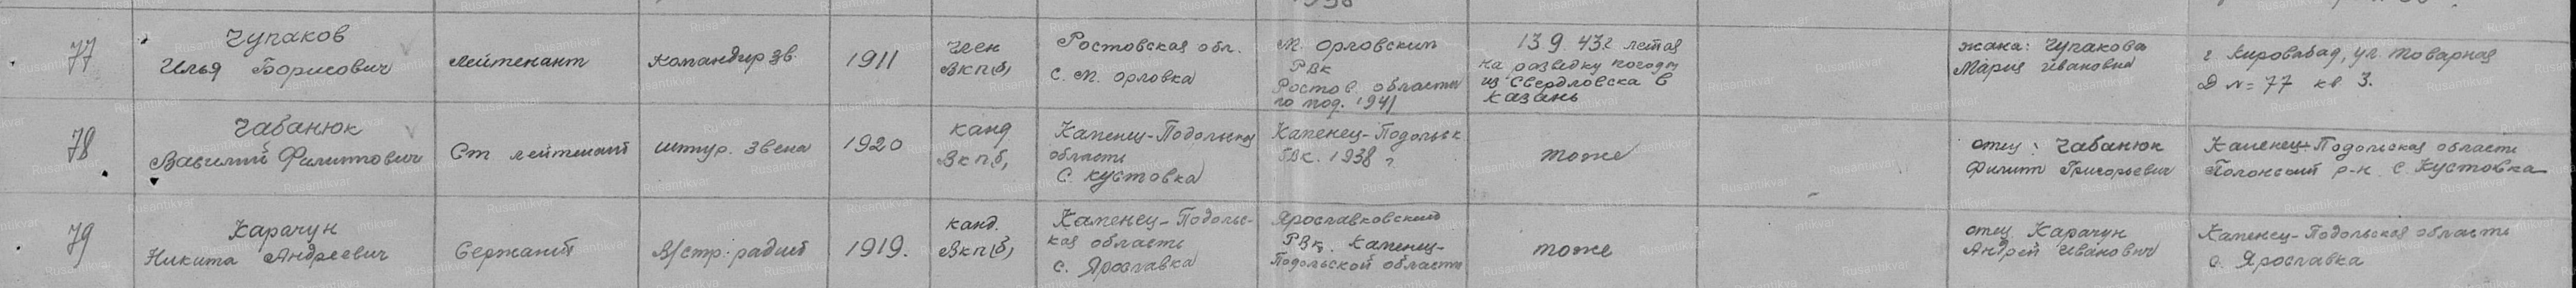 77
Чупаков
Илья Борисович
лейтенант
командир зв.
1911
член
ВКП(б)
Ростовская обл.
с. М. Орловка
М. Орловским
РВК
Ростов. области
1941
13.9.43г летая
на разведку погоды
из Свердловска в
Казань
жена: Чупакова
Мария Ивановна
г. Кировабад, ул. Товарная
Д № 77 кв 3.
78
Чабанюк
Василий Филиппович
Ст лейтенант
штур. звена
1920
канд
ВКП(б)
Каменец-Подольская
область
с. Кустовка
Каменец-Подольск
ГВК. 1938 г
тоже
отец: Чабанюк
Филипп Григорьевич
Каменец-Подольская область
Полонский р-н с. Кустовка
79
Карачун
Никита Андреевич
Сержант
В/стр. радист
1919.
канд.
ВКП(б)
Каменец-Подольс-
кая область
с. Ярославка
Ярославковский
РВК. Каменец-
Подольской области
тоже
отец Карачун
Андрей Иванович
Каменец-Подольская область
с. Ярославка